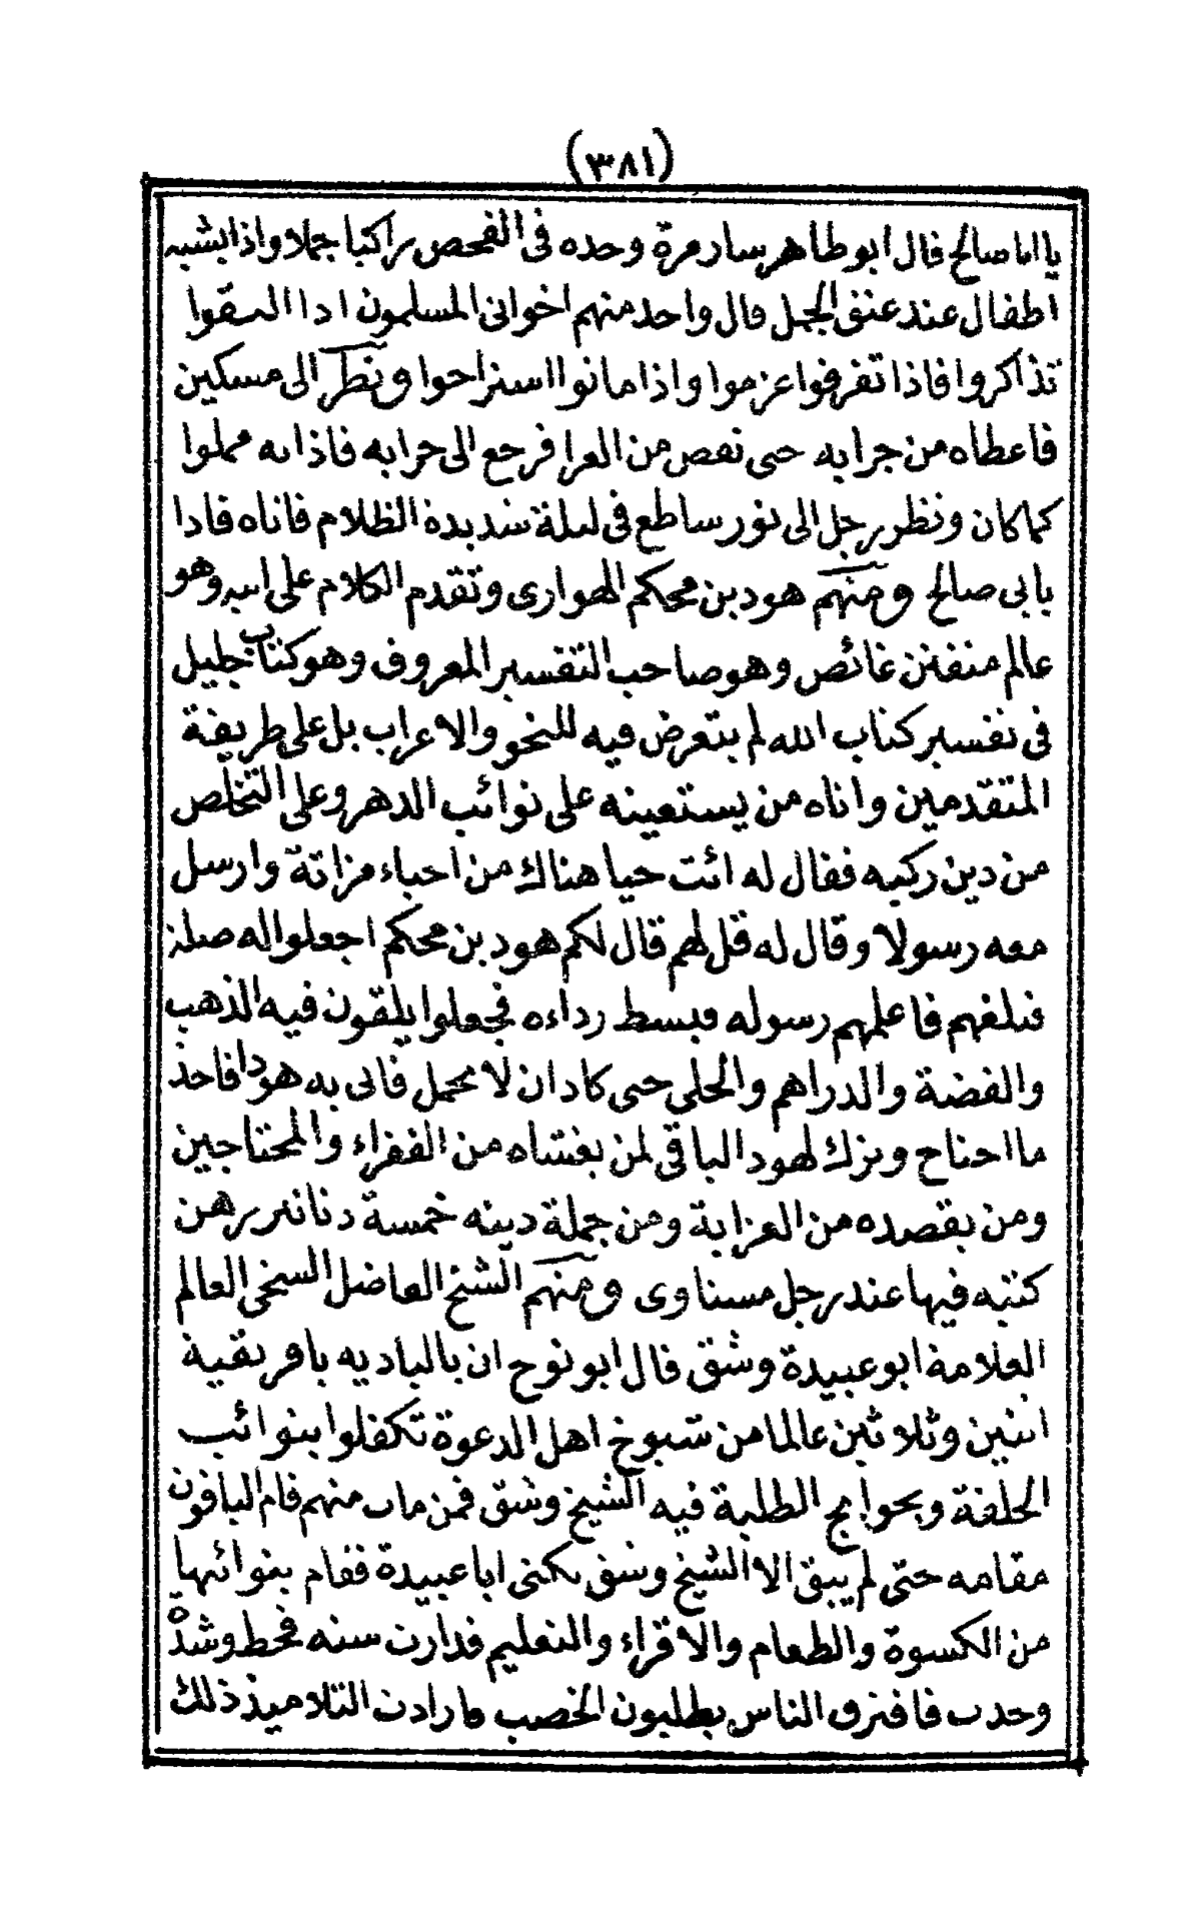 (٣٨١)
يا ابا صالح قال ابو طاهر سار مرة وحده فى الفحص راكبا جملا واذا بشبه
اطفال عند عنق الجمل قال واحد منهم اخوانى المسلمون اذا التقوا
تذاكروا فاذا تفرقوا عزموا واذا ماتوا استراحوا ونظر الى مسكين
فاعطاه من جرابه حتى نقص من العرا فرجع الى جرابه فاذا به مملوا
كما كان ونظر رجل الى نور ساطع فى ليلة شديدة الظلام فاتاه فاذا
بابى صالح ومنهم هود بن محكم الهوارى وتقدم الكلام على ابيه وهو
عالم متفنن غائص وهو صاحب التفسير المعروف وهو كتاب جليل
فى تفسير كتاب الله لم يتعرض فيه للنحو والاعراب بل على طريقة
المتقدمين واتاه من يستعينه على نوائب الدهر وعلى التخلص
من دين ركبه فقال له ائت حيا هناك من احياء مزاتة وارسل
معه رسولا وقال له قل لهم قال لكم هود بن محكم اجعلوا له صلة
فبلغهم فاعلمهم رسوله فبسط رداءه فجعلوا يلقون فيه الذهب
والفضة والدراهم والحلى حتى كاد ان لا يحمل فاتى به هودا فاخذ
ما احتاج وترك لهود الباقى لمن يغشاه من الفقراء والمحتاجين
ومن يقصده من العزابة ومن جملة دينه خمسة دنانير رهن
كتبه فيها عند رجل مسناوى ومنهم الشيخ الفاضل السخى العالم
العلامة ابو عبيدة وشق قال ابو نوح ان بالباديه بافريقية
اثنين وثلاثين عالما من شيوخ اهل الدعوة تكفلوا بنوائب
الحلقة وبحوايج الطلبة فيه الشيخ وشق فمن مات منهم قام الباقون
مقامه حتى لم يبق الا الشيخ وشق يكنى ابا عبيدة فقام بنوائبها
من الكسوة والطعام والاقراء والتعليم فدارت سنه قحط وشدّة
وجدب فافترق الناس يطلبون الخصب فارادت التلاميذ ذلك